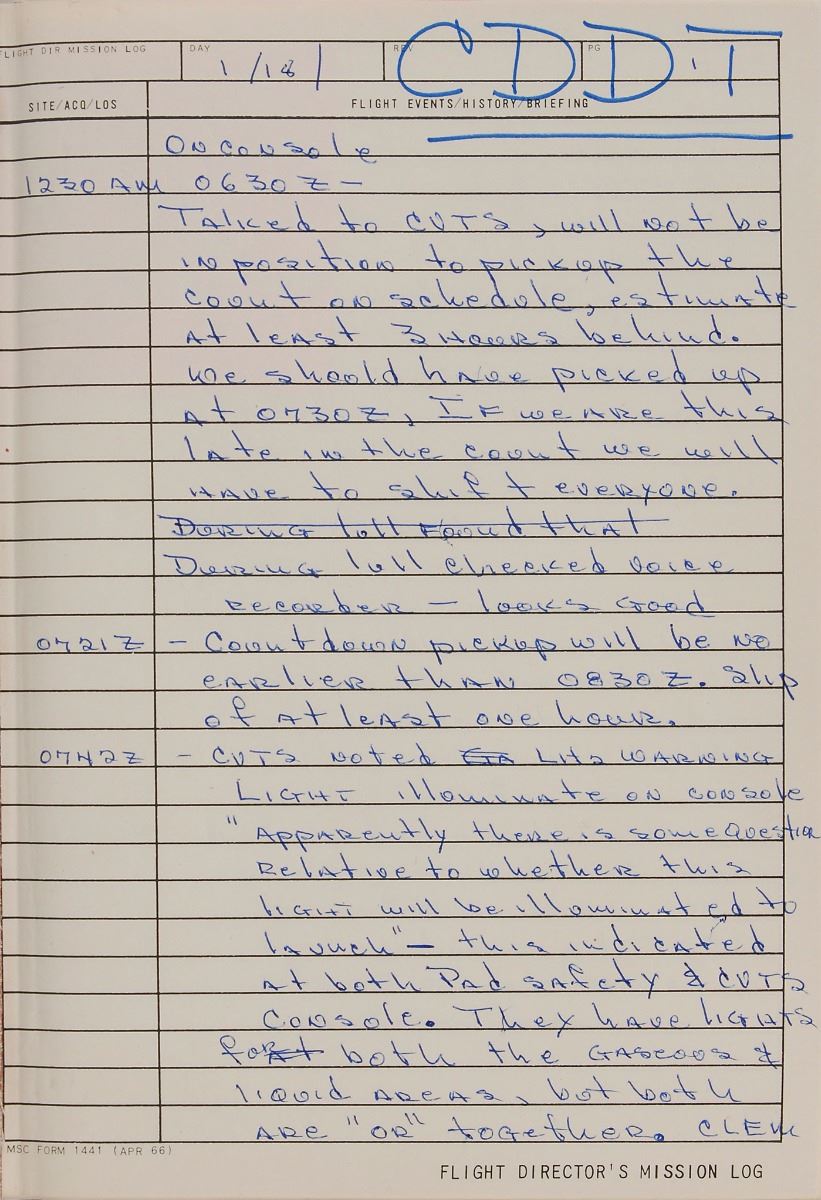 FLIGHT DIR MISSION LOG DAY 1/18 REV CDDT PG
SITE/ACQ/LOS FLIGHT EVENTS/HISTORY/BRIEFING
ON CONSOLE
1230 AM 0630Z -
TALKED to CVTS, will NOT be
IN POSITION to pickup the
COUNT ON schedule, estimate
At least 3 HOURS behind.
We should have picked up
At 0730Z, IF we are this
late in the count we will
HAVE to shift everyone.
DURING lull found that
DURING lull checked voice
recorber - looks Good
0721Z - Countdown pickup will be NO
EARLIER thAN 0830Z. Slip
of At least one hour.
0742Z - CVTS NOTED LH2 WARNING
LIGHT illuminate on console
"Apparently there is some question
Relative to whether this
light will be illuminated to
launch" - this indicated
At both Pad safety & CVTS
Console. They have lights
for both the GASEOUS &
liquid AREAS, but both
ARE "OR" together. CLEM
MSC FORM 1441 (APR 66)
FLIGHT DIRECTOR'S MISSION LOG